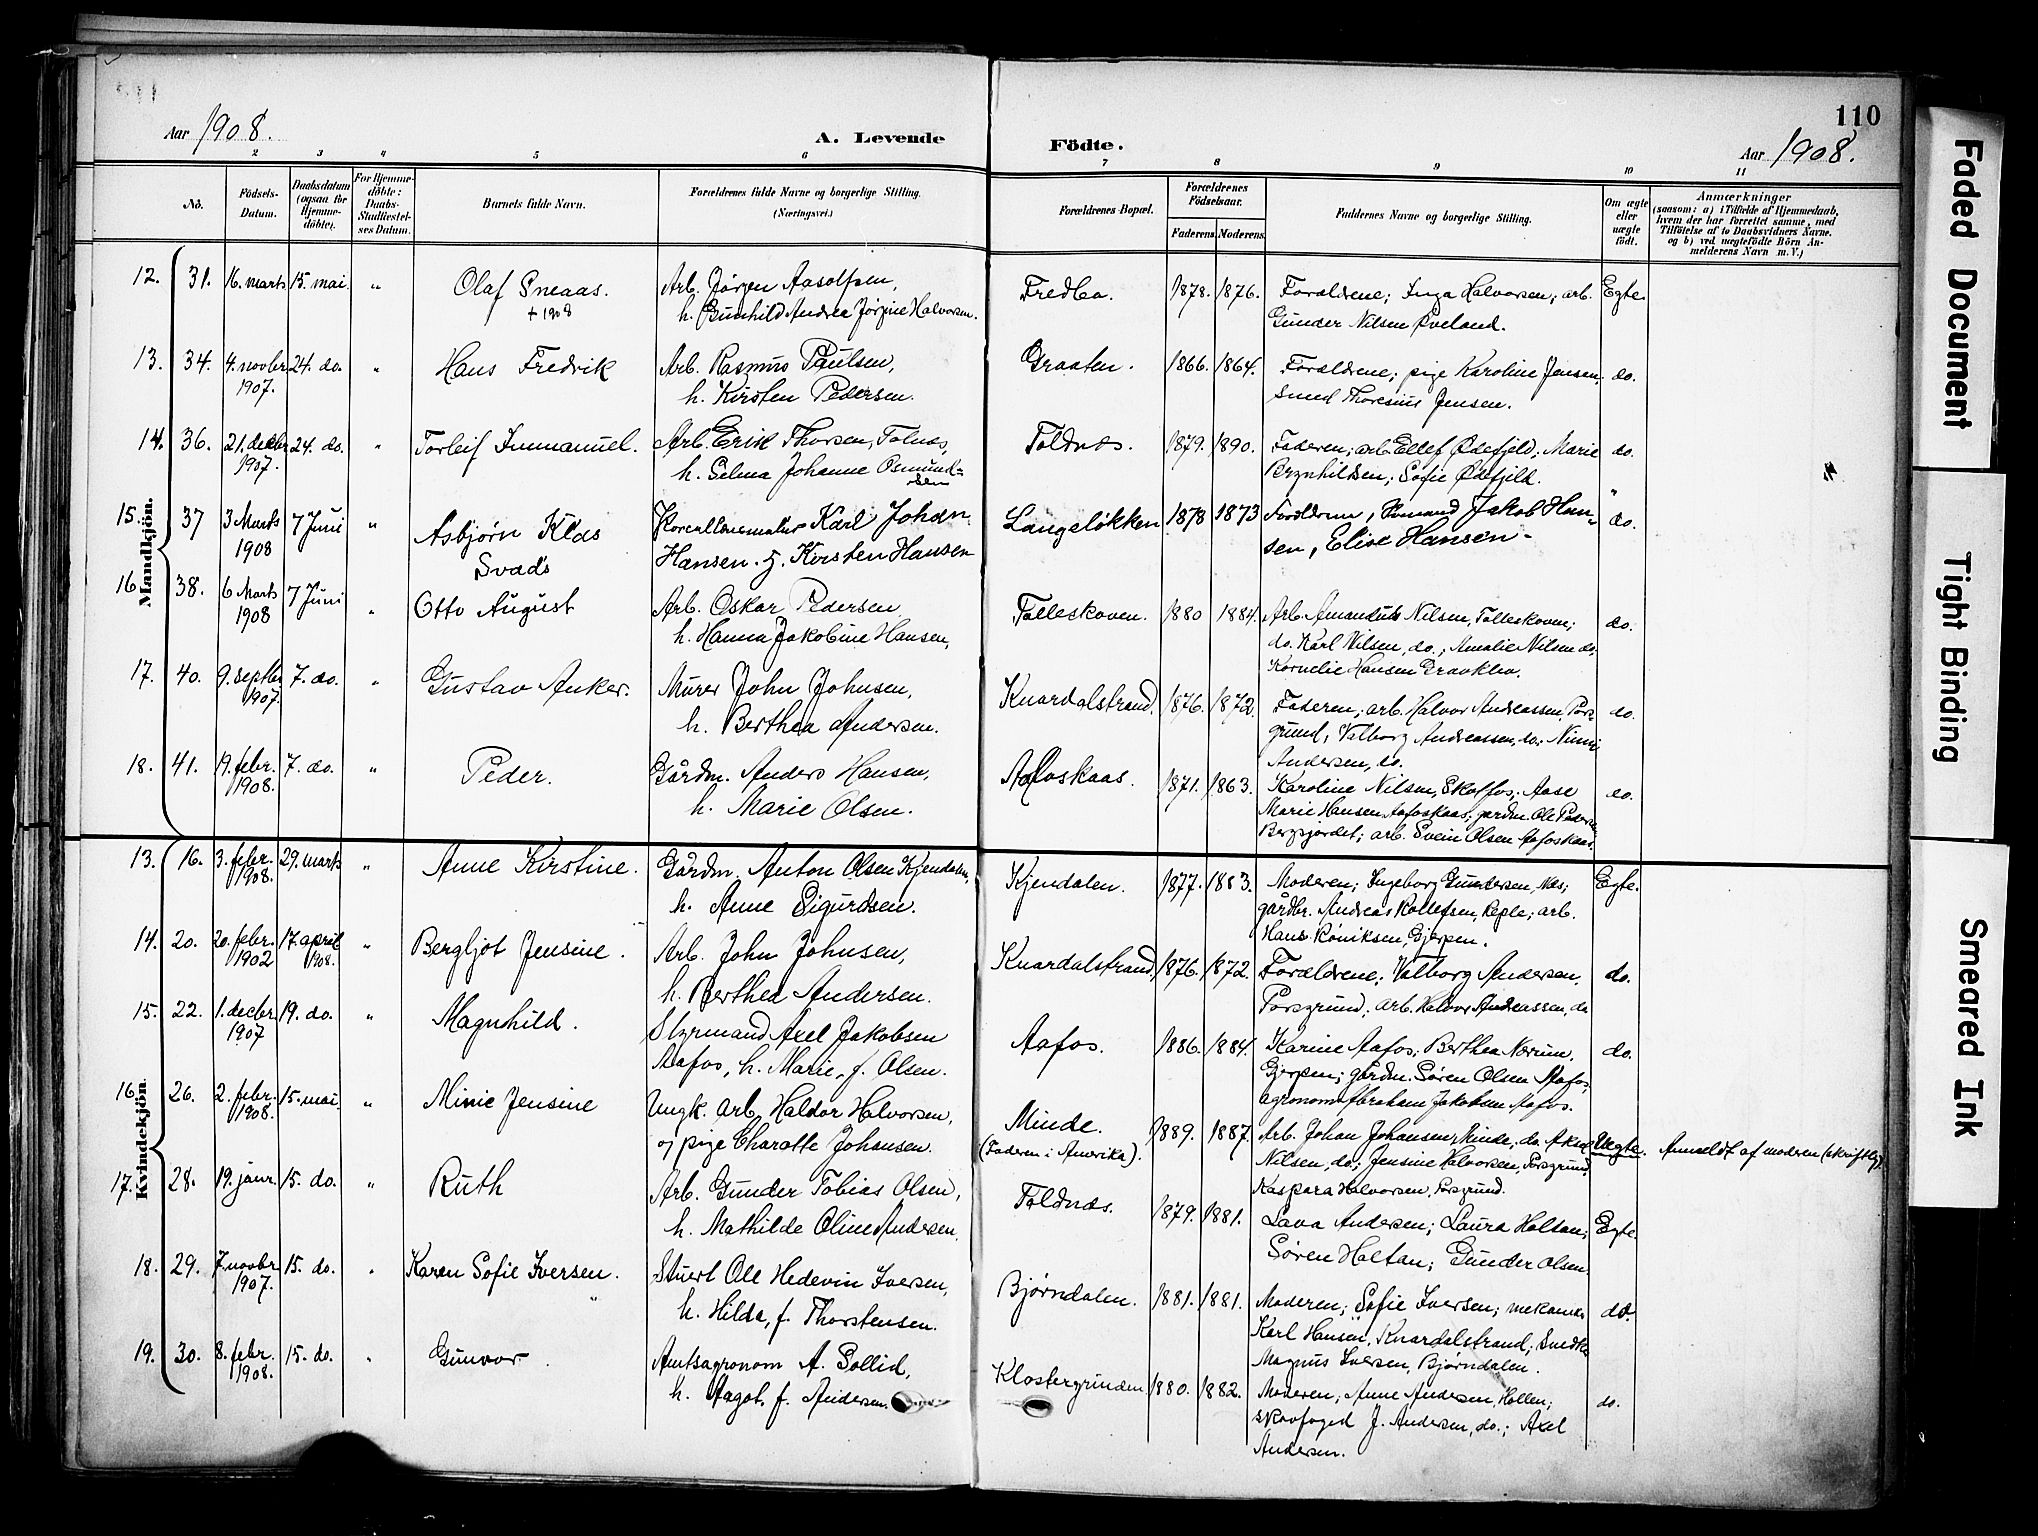 110
Aar 1908.
A. Levende
Födte.
Aar 1908.
2 3 4 5 6 7 8 9 10 11
No.
Födsels-
Datum.
Daabsdatum
(ogsaa for
Hjemme-
döbte).
For Hjemme-
döbte:
Daabs-
Stadfæstel-
ses Datum.
Barnets fulde Navn.
Forældrenes fulde Navne og borgerlige Stilling.
(Næringsvei.)
Forældrenes Bopæl.
Forældrenes
Födselsaar.
Faderens. Moderens.
Faddernes Navne og borgerlige Stilling.
Om ægte
eller
uægte
födt.
Anmærkninger
(saasom: a) i Tilfælde af Hjemmedaab,
hvem der har forrettet samme, med
Tilföielse af to Daabsvidners Navne.
og b) ved uægtefödte Börn An-
melderens Navn m. V.)
Mandkjön.
12. 31. 16. marts 15. mai. " Olaf Sneaas. Arb. Jørgen Aasolfsen, Fredbo. 1878. 1876. Forældrene; Inga Halvorsen; arb. Egte.
+ 1908 h. Gunhild Andrea Jørgine Halvorsen. Gunder Nilsen Øveland.
13. 34. 4. novbr 24. do. " Hans Fredrik Arb. Rasmus Paulsen, Graaten. 1866. 1864. Forældrene; pige Karoline Jensen, do.
1907. h. Kirsten Pedersen. Smed Thoresius Jensen.
14. 36. 21. decbr 24. do. " Torleif Immanuel. Arb. Erik Thorsen, Tolnæs, Toldnæs. 1879. 1890. Faderen; arb. Ellef Ødefjeld, Marie do.
1907. h. Selma Johanne Osmund- Brynhildsen; Sofie Ødefjeld.
sen
15. 37 3 Marts 7 Juni " Asbjørn Klas Porcellænsmaler Karl Johan Langeløkken 1878 1873 Forældrene, Sømand Jakob Han- do.
1908 Svads Hansen. h. Kirsten Hansen sen, Elise Hansen -
16 38. 6 Marts 7 Juni " Otto August Arb. Oskar Pedersen, Tolleskoven. 1880 1884. Arb. Amandus Nilsen, Tolleskoven; do.
1908 h. Hanna Jakobine Hansen, do. Karl Nilsen, do.; Amalie Nilsen do,
Kornelie Hansen Graaklev.
17. 40. 9. septbr 7. do. " Gustav Anker. Murer John Johnsen, Knardalstrand. 1876. 1872. Faderen; arb. Halvor Andreassen, Pors- do.
1907. h. Berthea Andersen. grund, Valborg Andreassen, do.; Nimi
Andersen, do.
18. 41. 19. febr. 7. do. " Peder. Gårdm. Anders Hansen, Aafoskaas. 1871. 1863. Karoline Nilsen, Skotfos; Aase do.
1908. h. Marie Olsen. Marie Hansen Aafoskaas; gårdm. Ole Pedersen
Bergsjordet; arb. Svein Olsen Aafoskaas.
Kvindekjön.
13. 16. 3. febr. 29. marts " Anne Kirstine. Gårdm. Anton Olsen Kjendalen, Kjendalen. 1877. 1883. Moderen; Ingeborg Gundersen, Næs; Egte.
1908. h. Anne Sigurdsen. gårdbr. Andreas Rollefsen, Reple; arb.
Hans Røniksen, Gjerpen.
14. 20. 20. febr. 17. april " Bergljot Jensine. Arb. John Johnsen, Knardalstrand, 1876. 1872. Forældrene; Valborg Andersen, do.
1902 1908. h. Berthea Andersen. Porsgrund; arb. Halvor Andreassen, do
15. 22. 1. decbr 19. do. " Magnhild. Styrmand Axel Jakobsen Aafos. 1886. 1884. Karine Aafos; Berthea Nærum, do.
1907 Aafos, h. Marie, f. Olsen. Gjerpen; gårdm. Søren Olsen Aafos,
agronom Abraham Jakobsen Aafos.
16. 26. 2. febr. 15. mai. " Minie Jensine Ungk. arb. Haldor Halvorsen, Minde. 1889. 1887. Arb. Johan Johansen Minde, do. Aksel Uegte. Anmeldt af moderen (skriftlig).
1908. og pige Charatte Johansen. (Faderen i Amerika). Nilsen, do.; Jensine Halvorsen, Porsgrund,
Kaspara Halvorsen, Porsgrund.
17. 28. 19. janr. 15. do. " Ruth Arb. Gunder Tobias Olsen, Toldnæs. 1879. 1881. Lava Andersen; Laura Holtan; Egte.
h. Mathilde Oline Andersen. Søren Holtan; Gunder Olsen.
18. 29. 7. novbr 15. do. " Karen Sofie Iversen. Stuert Ole Hedevin Iversen, Bjørndalen. 1881. 1881. Moderen; Sofie Iversen; mekaniker do.
1907. h. Hilda, f. Thorstensen. Karl Hansen, Knardalstrand; Snedker
Magnus Iversen, Bjørndalen.
19. 30. 8. febr. 15. do. " Gunvor. Amtsagronom A. Sollid, Klostergrunden 1880. 1882. Moderen; Anne Andersen, Hollen; do.
1908. h. Aagot, f. Andersen. skovfoged J. Andersen, do.; Axel
Andersen.
Faded Document
Tight Binding
Smeared Ink